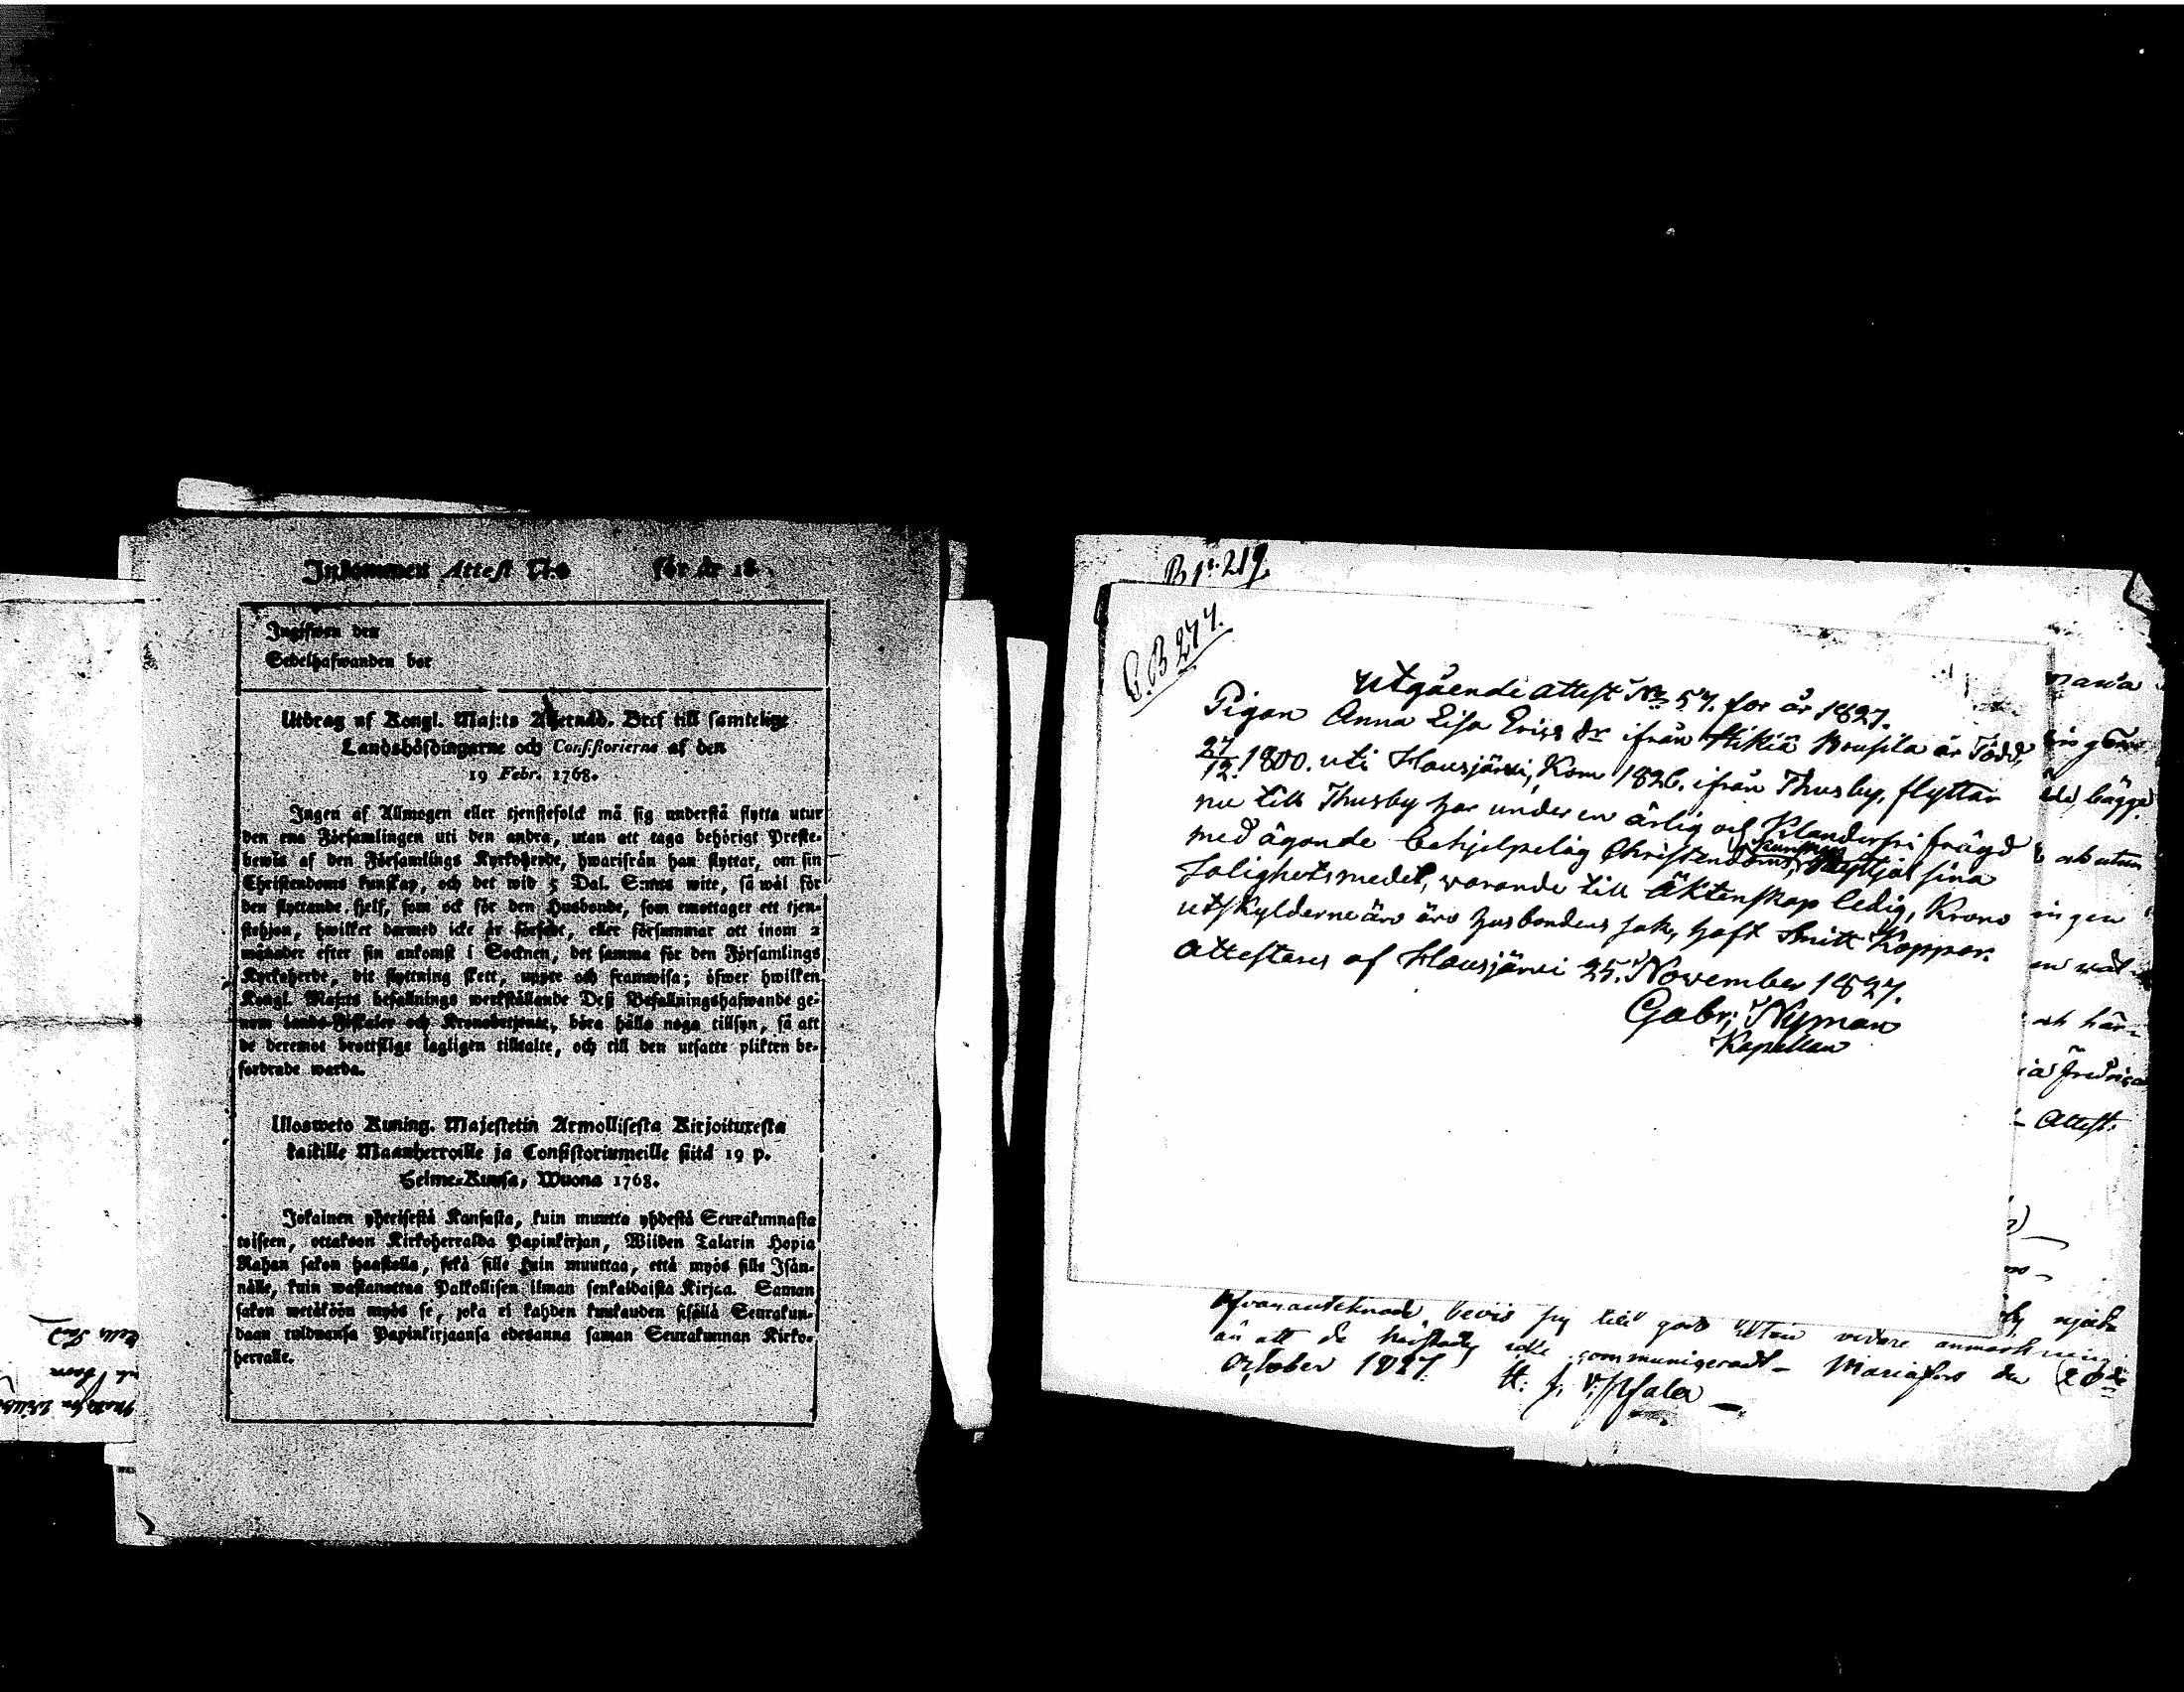 Inkommen Attest N:o för År 18
Ingifwen den
Sedelhafwanden bor
Utdrag af Kongl. Maj:ts Allernåd. Bref till samtelige
Landshöfdingarne och Consistorierna af den
19 Febr. 1768.
Ingen af Allmogen eller tjenstefolck må sig understå flytta utur
den ena Församlingen uti den andra, utan att taga behörigt Preste-
bewis af den Församlings Kyrkoherde, hwarifrån han flyttar, om sin
Christendoms kunskap, och det wid 5 Dal. S:mts wite, så wäl för
den flyttande sjelf, som ock för den Husbonde, som emottager ett tjen-
stehjon, hwilket dermed icke är försedt, eller försummar att inom 2
månader efter sin ankomst i Socknen, det samma för den Församlings
Kyrkoherde, dit flyttning skett, upte och framwisa; öfwer hwilken
Kongl. Maj:ts befallnings werkställande Deß Befallningshafwande ge-
nom Lands-Fiskaler och Kronobetjente, böra hålla noga tillsyn, så att
de deremot brottslige lagligen tilltalte, och till den utsatte plikten be-
fordrade warda.
Ulosweto Kuning. Majestetin Armollisesta Kirjoituxesta
kaikille Maanherroille ja Consistoriumeille siitä 19 p.
Helme-Kuusa, Wuona 1768.
Jokainen yhteisestä Kansasta, kuin muutta yhdestä Seurakunnasta
toiseen, ottakoon Kirkoherralda Papinkirjan, Wiiden Talarin Hopia
Rahan sakon haastolla, sekä sille kuin muuttaa, että myös sille Isän-
nälle, kuin wastanottaa Palkollisen ilman senkaldaista Kirjaa. Saman
sakon wetäköön myös se, joka ei kahden kuukauden sisällä Seurakun-
daan tulduansa Papinkirjaansa edesanna saman Seurakunnan Kirko-
herralle.
B p. 219.
G.B 277.
Utgående attest No 57. för år 1827.
Pigan Anna Lisa Ericsdr ifrån Hikiä Brusila är född
27/12. 1800. uti Hausjärvi, Kom 1826. ifrån Thusby, flyttar
nu till Thusby har under en ärlig och Klanderfri frägd
med ägande behjelpelig Christendoms kunskap sina
Salighetsmedel, varande till Äktenskap ledig, Krono
utskylderne äro äro husbondens sak, haft Smitt Koppor.
Attesteres af Hausjärvi 25. November 1827.
Gabr: Nyman
Kapellan
maria
bägge
ingen
Fredrica
Attest.
Ofvanantecknade bevis till godo utan vidare anmärkning
än att de icke communiceradt – Mariefors den 20de
October 1827.